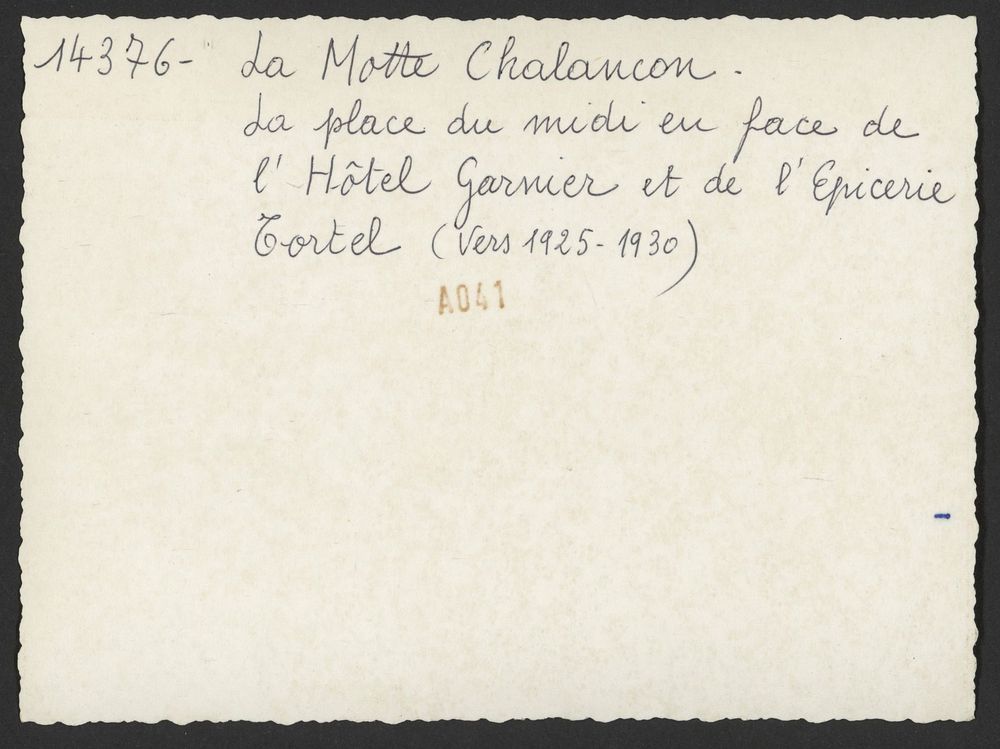 14376- La Motte Chalancon.
La place du midi en face de
l'Hôtel Garnier et de l'Epicerie
Tortel (Vers 1925-1930)
A041